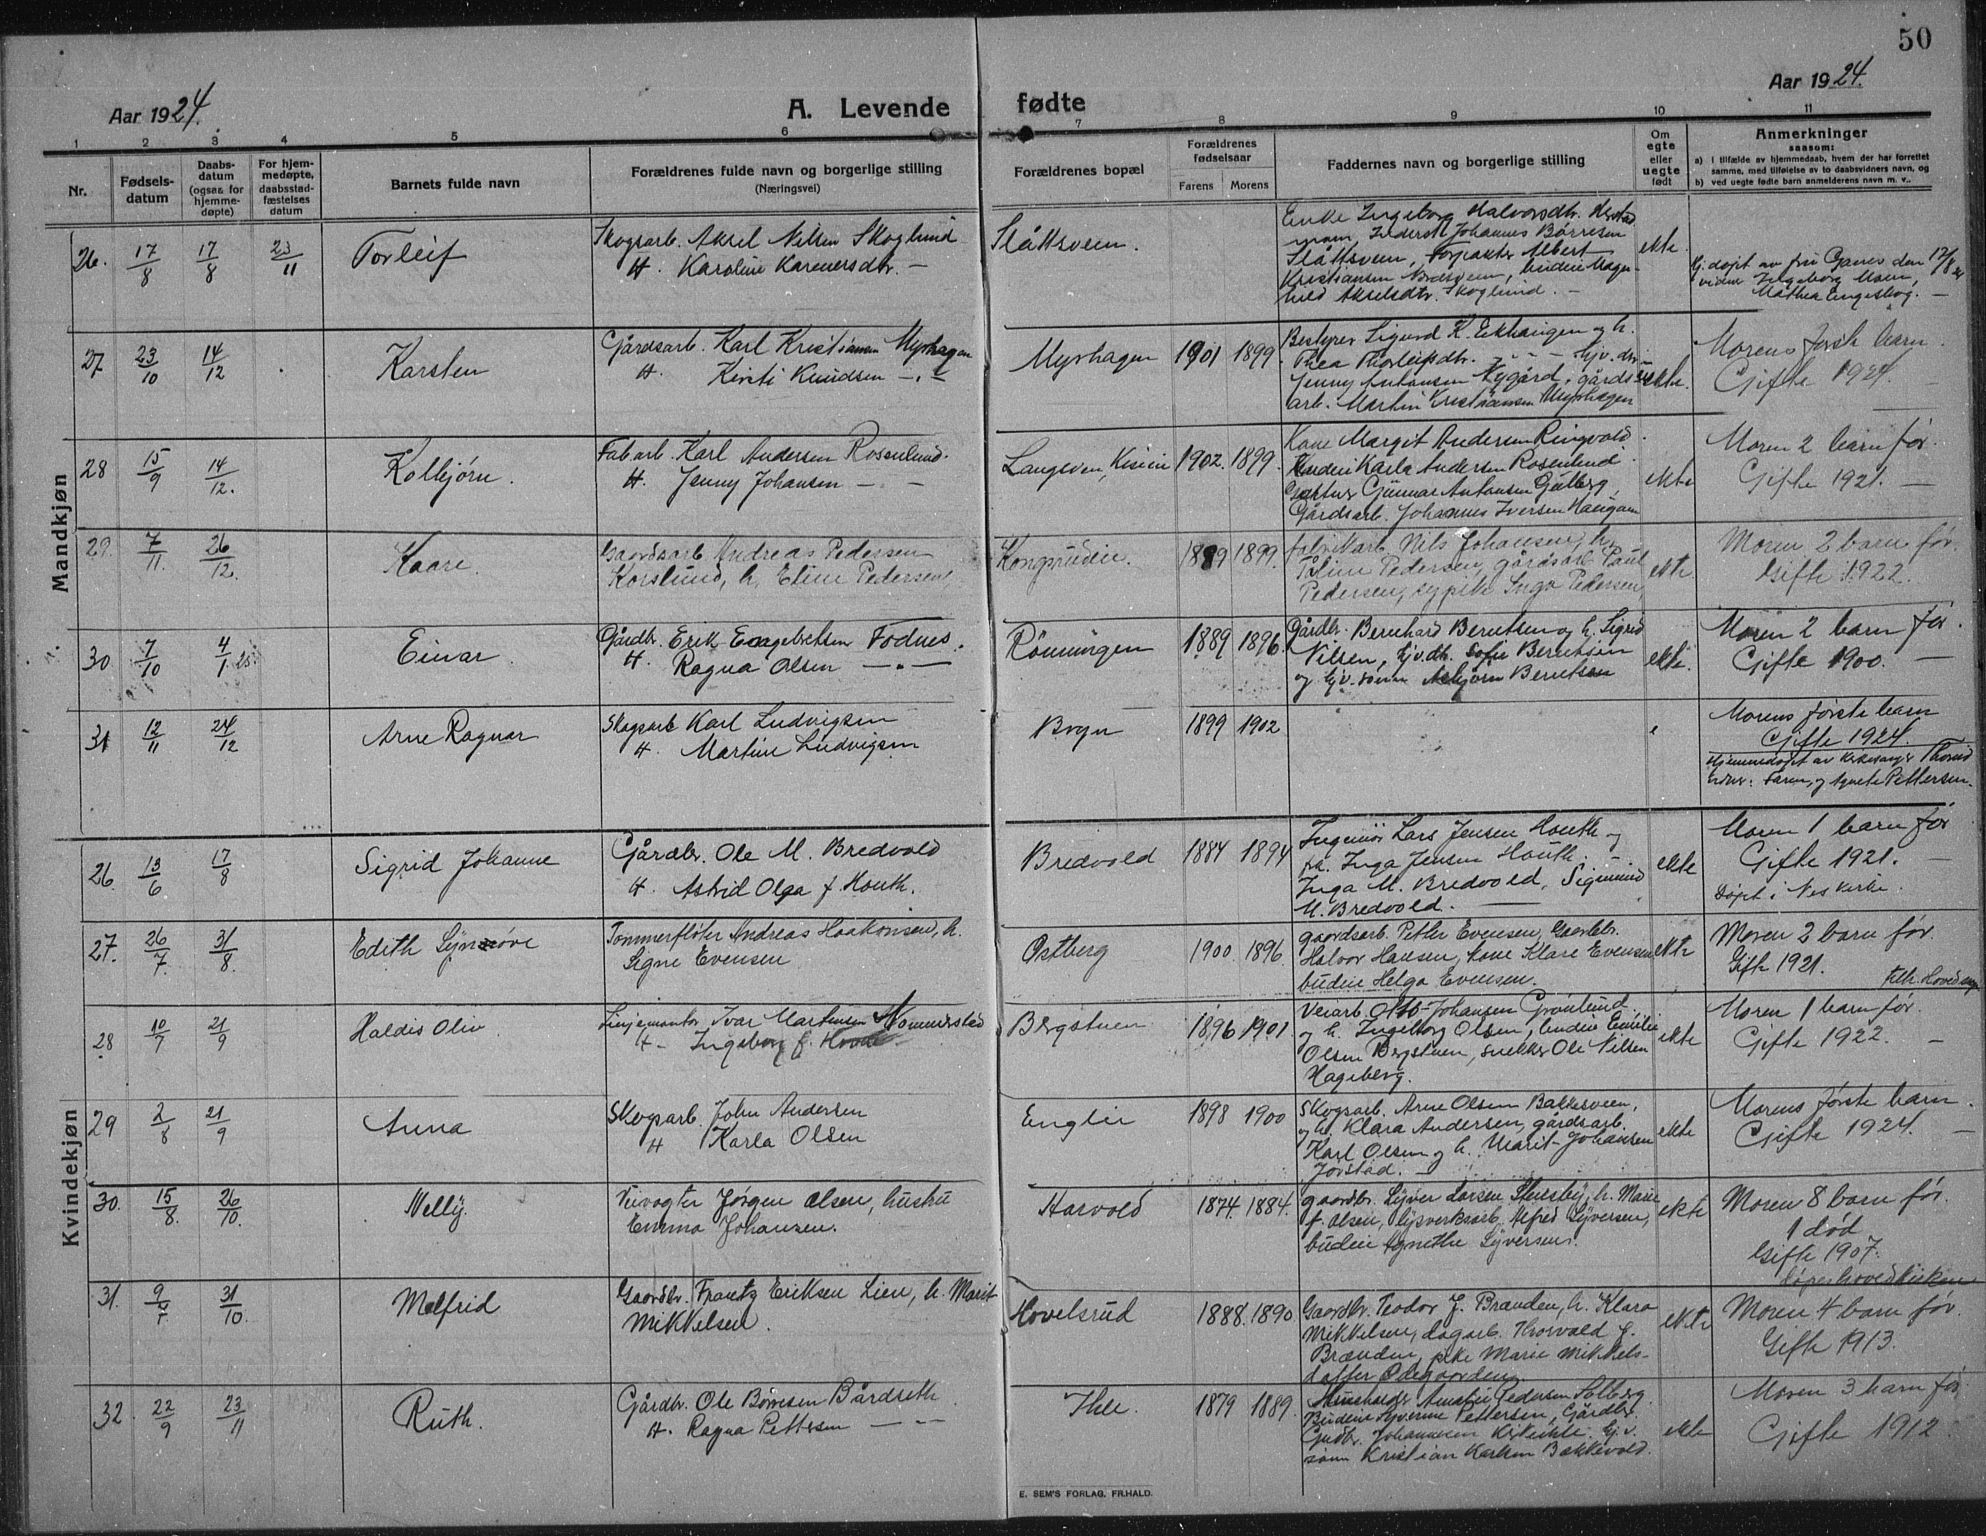 50
Aar 1924.
A. Levende fødte
Aar 1924.
1 2 3 4 5 6 7 8 9 10 11
Nr.
Fødsels-
datum
Daabs-
datum
(ogsaa for
hjemme-
døpte)
For hjem-
medøpte,
daabsstad-
fæstelses
datum
Barnets fulde navn
Forældrenes fulde navn og borgerlige stilling
(Næringsvei)
Forældrenes bopæl
Forældrenes
fødselsaar
Farens Morens
Faddernes navn og borgerlige stilling
Om
egte
eller
uegte
født
Anmerkninger
saasom:
a) i tilfælde av hjemmedaab, hvem der har forrettet
samme, med tilføielse av to daabsvidners navn, og
b) ved uegte fødte barn anmelderens navn m. v..
Mandkjøn
26. 17/8 17/8 23/11 Torleif
Skogsarb. Aksel Nilsen Skoglund
H. Karoline Karenersdtr. —
Slåttsveen.
Enke Ingeborg Halvorsdtr.
Johannes Børresen
Slåttsveen, Forpakter Albert
Kristiansen, budeie Magn-
hild Akselsdtr. Skoglund. —
ekte
Hj.døpt av fru Ganes den 17/8 24
vidner Ingeborg Moen,
Mathea Engeskog. —
27 23/10 14/12 Karsten
Gårdsarb. Karl Kristiansen Myrhagen
H. Kirsti Knudsen — " —
Myrhagen 1901 1899
Bestyrer Sigurd K. Eekhaugen og h.
Thea Thorleifsdtr. — " — Gjv. dtr.
Jenny Antonsen Nygård, gårds-
arb. Martin Kristiansen Myrhagen
ekte.
Morens første barn.
Gifte 1924. —
28 15/9 14/12. Kolbjørn.
Fabarb. Karl Andersen Rosenlund.
H. Jenny Johansen — " —
Langsveen, 1902. 1899.
Kone Margit Andersen Ringvold.
Budeie Karla Andersen Rosenlund.
Gunnar Antonsen Gulberg,
Gårdsarb. Johannes Iversen Haugan
ekte
Moren 2 barn før.
Gifte 1921. —
29. 7/11. 26/12. Kaare.
Gaardsarb Andreas Pedersen
Korslund, h. Eline Pedersen,
Kongsrudeie. 1889 1899.
fabrikarb. Nils Johansen, h.
Poline Pedersen, gårdsarb. Paul
Pedersen, sypike Inga Pedersen,
ekte.
Moren 2 barn før.
Gifte 1922.
30 7/10 4/1 25 Einar.
Gårdbr. Erik Engebretsen Fodnes.
H. Ragna Olsen — " —
Rønningen 1889 1896.
Gårdbr. Bernhard Berntsen og h. Sigrid
Nilsen, Gjv.dtr. Sofie Berntsen
og Gjv. sønn Asbjørn Berntsen
ekte.
Moren 2 barn før.
Gifte 1900. —
31 12/11 24/12 Arne Ragnar
Skogsarb Karl Ludvigsen
H. Martine Ludvigsen
Bogn 1899 1902
e
Morens første barn
Gifte 1924.
Hjemmedøpt av Kirkesanger
vidner: Faren, og Agnete Pettersen.
Kvindekjøn
26. 13/6 17/8 Sigrid Johanne
Gårdbr. Ole M. Bredvold
H. Astrid Olga f. Houth.
Bredvold 1884 1894
Ingeniør Lars Jensen Houth og
fr. Inga Jensen Houth.
Inga M. Bredvold, Sigmund
M. Bredvold. —
ekte
Moren 1 barn før
Gifte 1921. —
Døpt i Nes Kirke.
27. 26/7. 31/8. Edith Synnøve
Tømmerfløter Andreas Haakonsen, h.
Signe Evensen
Østberg 1900. 1896.
gaardsarb. Petter Evensen, Gaardbr.
Halvor Hansen, kone Klare Evensen
budeie Helga Evensen.
ekte
Moren 2 barn før.
Gifte 1921.
28 10/7 21/9 Haldis Oliv
Linjemontør Ivar Martinsen
H — Ingeborg f.
Bergstuen 1896 1901
Veiarb. Otto Johansen Grønlund
og h. Ingeborg Olsen, budeie Emilie
Olsen Bergstuen, snekker Ole Nilsen
Hageberg.
ekte
Moren 1 barn før.
Gifte 1922. —
29 2/8 21/9 Anna
Skogsarb. John Andersen
H Karla Olsen
Englie 1898 1900
Skogsarb. Arne Olsen Bakkesveen,
og h. Klara Andersen, gårdsarb.
Karl Olsen og h. Marit Johansen
Jorstad. —
ekte
Morens første barn.
Gifte 1924. —
30. 15/8. 26/10. Nelly.
Veivogter Jørgen Olsen, hustru
Emma Johansen.
Harvold 1874. 1884.
gaardbr. Syver Larsen Stensby, h. Marie
f. Olsen, lysverksarb. Alfred Syversen,
budeie Agnethe Syversen.
ekte
Moren 8 barn før.
1 død
Gifte 1907.
Døpt hovedkirken
31. 9/7 31/10. Målfrid
Gaardbr. Frantz Eriksen Lien, h. Marit
Mikkelsen.
Hovelsrud 1888. 1890
Gaardbr. Teodor J. Brænden, h. Klara
Mikkelsen, dagarb. Thorvald J.
Brænden, pike Marie Mikkels-
datter Ødegaarden.
ekte
Moren 4 barn før.
Gifte 1913.
32. 22/9 23/11 Ruth.
Gårdbr. Ole Børresen Bårdseth
H. Ragna Pettersen — " —
Ihle. 1879 1889.
Amalie Pedersen Solberg
Budeie Syverine Pettersen, Gårdbr.
Gudbr. Johannesen Gj.v.
sønn Kristian Karlsen Bakkevold.
ekte
Moren 3 barn før
Gifte 1912.
E. SEM'S FORLAG, FR.HALD.